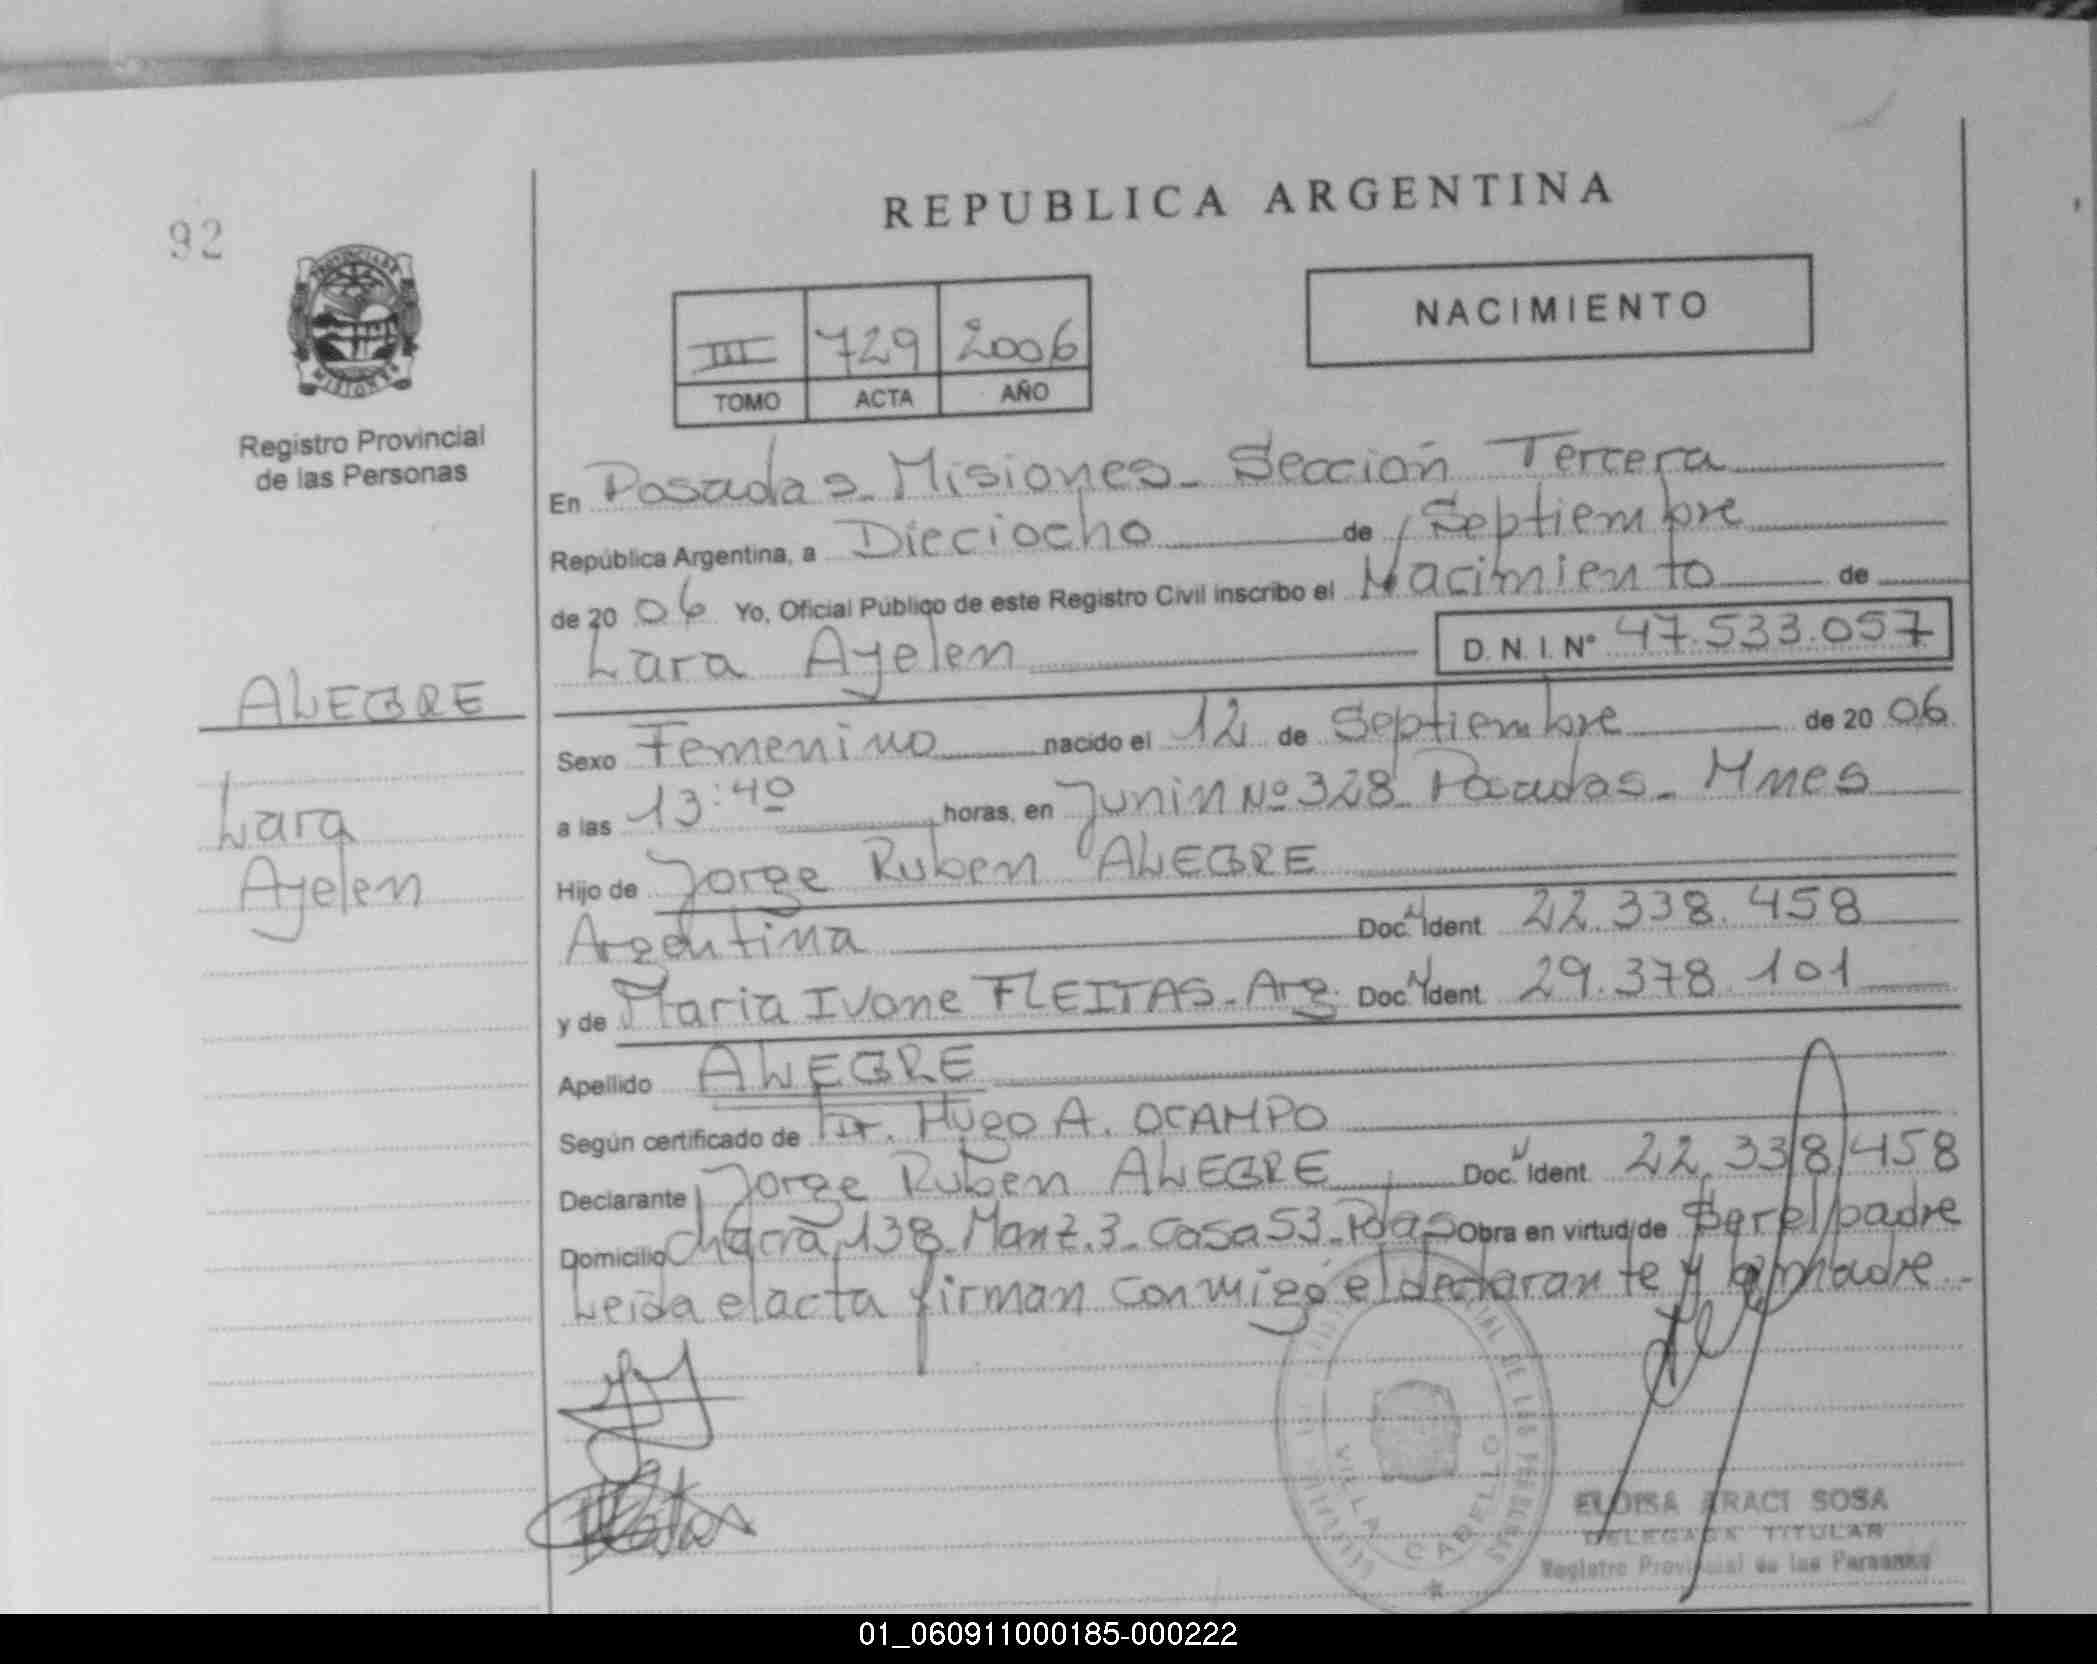 REPUBLICA ARGENTINA
92
PROVINCIA DE
MISIONES
Registro Provincial
de las Personas
NACIMIENTO
III 729 2006
TOMO ACTA AÑO
En Posadas - Misiones - Sección Tercera
República Argentina, a Dieciocho de Septiembre
de 2006 Yo, Oficial Público de este Registro Civil inscribo el Nacimiento de
Lara Ayelen D.N.I. Nº 47.533.057
ALEGRE
Lara
Ayelen
Sexo Femenino nacido el 12 de Septiembre de 2006
a las 13:40 horas, en Junin Nº 328 Posadas - Mnes
Hijo de Jorge Ruben ALEGRE
Argentina Doc. N Ident. 22.338.458
y de Maria Ivone FLEITAS - Arg. Doc. N Ident. 29.378.101
Apellido ALEGRE
Según certificado de Dr. Hugo A. OCAMPO
Declarante Jorge Ruben ALEGRE Doc. N Ident. 22.338.458
Domicilio Chacra 138 - Manz. 3 - Casa 53 - Pdas Obra en virtud de Ser el padre
Leida el acta firman conmigo el declarante y la madre -
VILLA CABELLO
ELOISA ARACI SOSA
DELEGADA TITULAR
Registro Provincial de las Personas
01_060911000185-000222